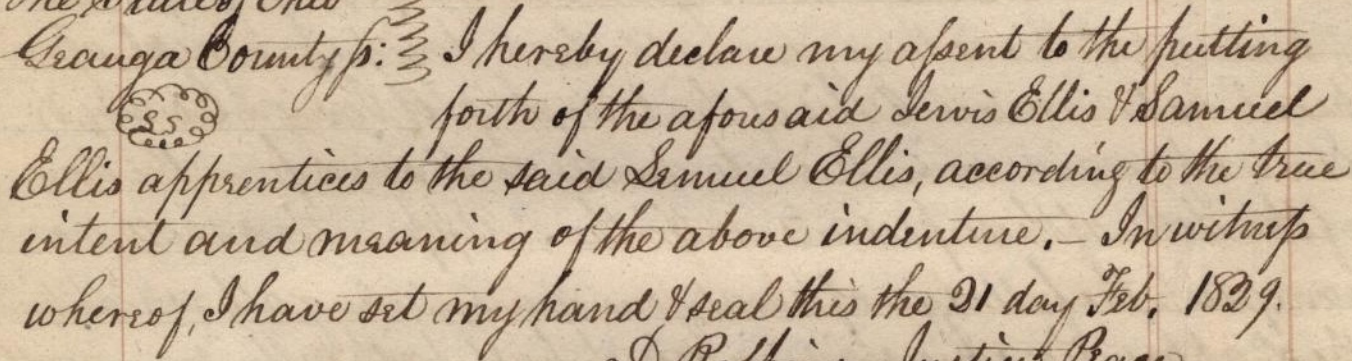 The State of Ohio
Geauga County ss: I hereby declare my assent to the putting
forth of the aforesaid Lewis Ellis & Samuel
SS
Ellis apprentices to the said Lemuel Ellis, according to the true
intent and meaning of the above indenture. – In witness
whereof, I have set my hand & seal this the 21 day Feb. 1829.
Justice Peace